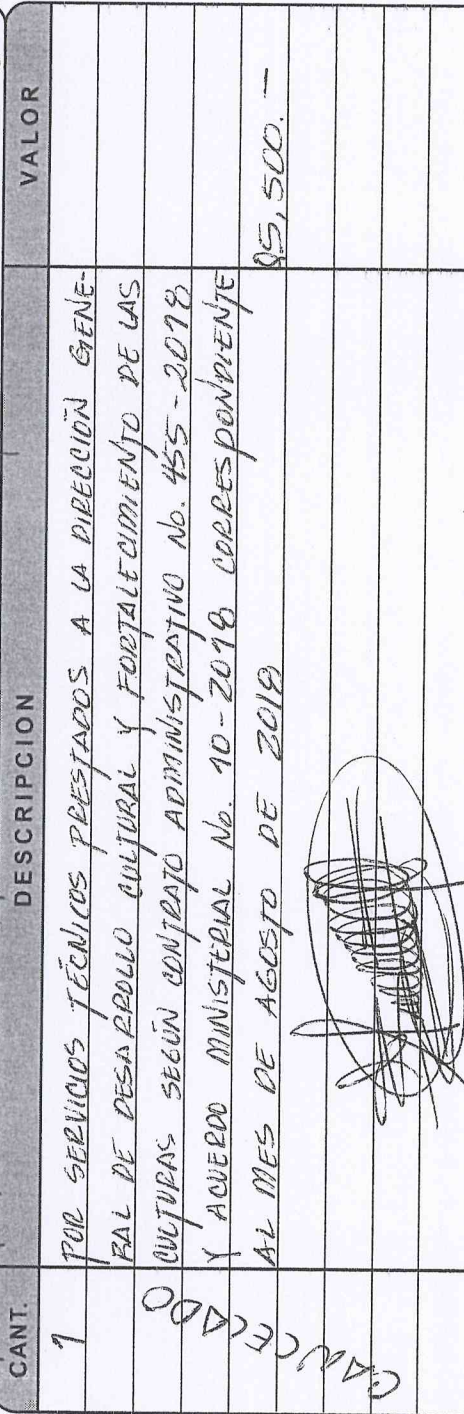 CANT. DESCRIPCION VALOR
1 POR SERVICIOS TÉCNICOS PRESTADOS A LA DIRECCIÓN GENE-
RAL DE DESARROLLO CULTURAL Y FORTALECIMIENTO DE LAS
CULTURAS SEGÚN CONTRATO ADMINISTRATIVO No. 455-2018
Y ACUERDO MINISTERIAL No. 10-2018 CORRESPONDIENTE
AL MES DE AGOSTO DE 2018 Q5,500.—
CANCELADO